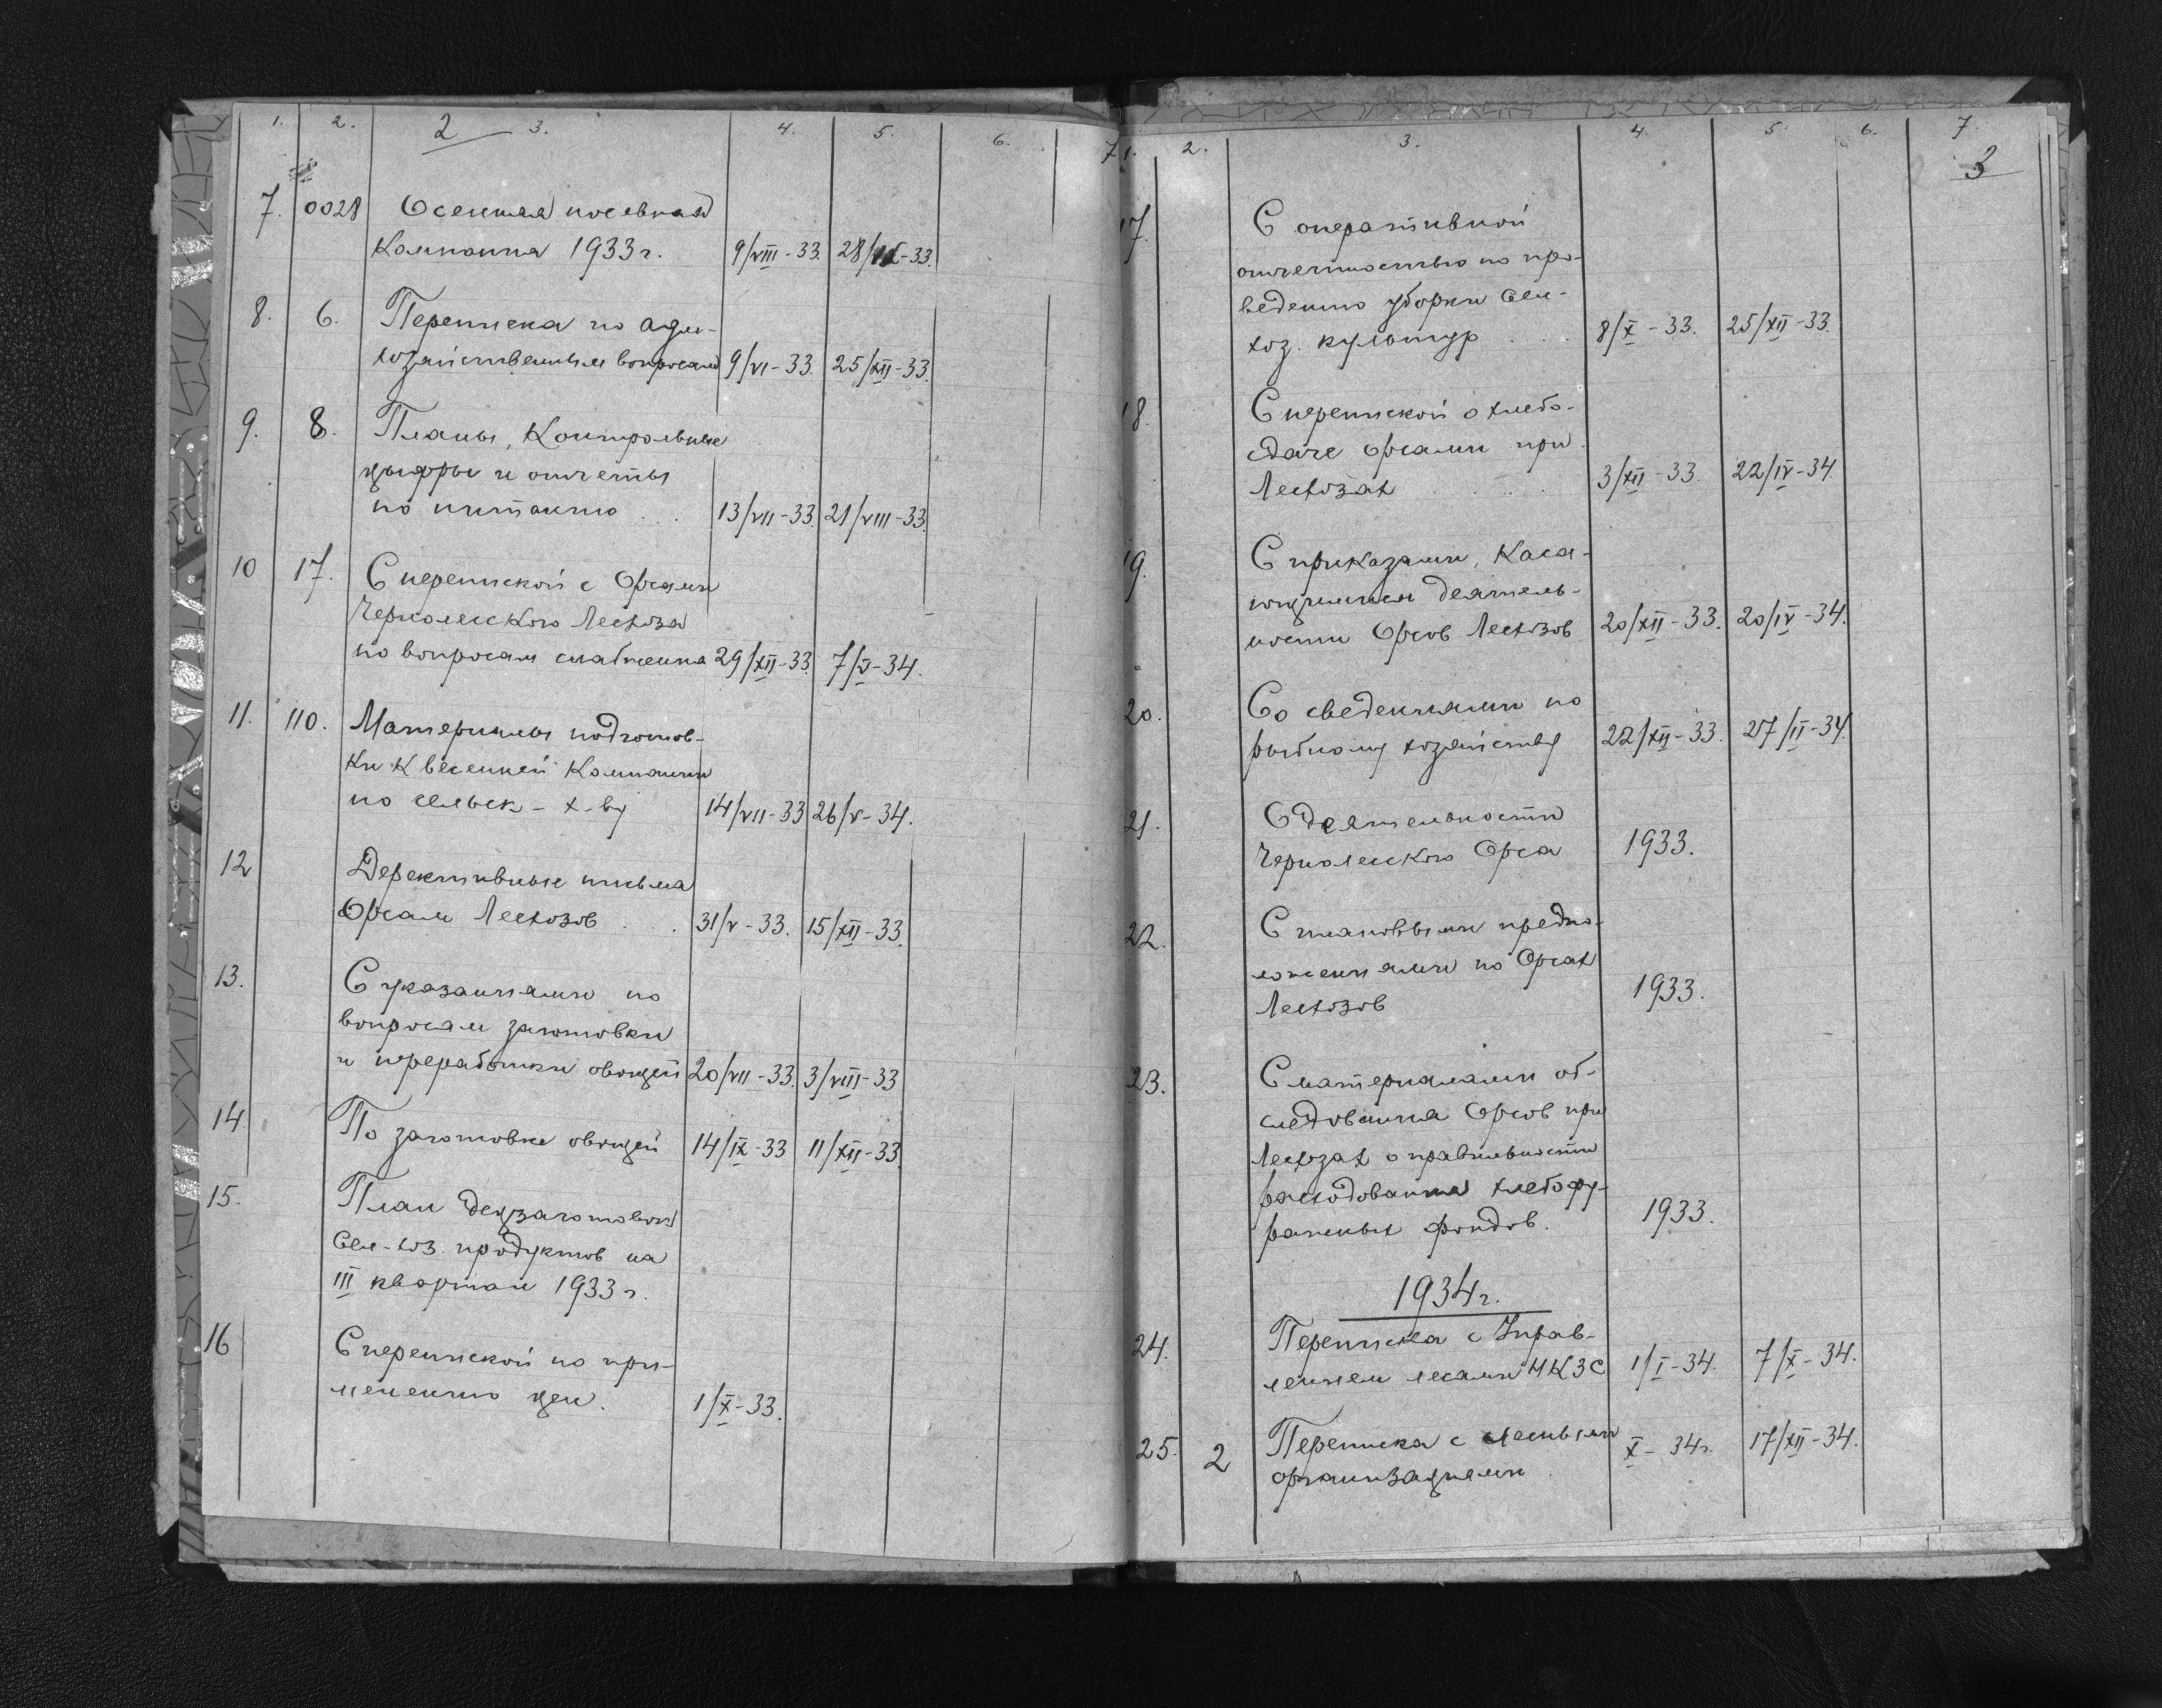 1. 2. 2 3. 4. 5. 6. 7
7. 0028 Осенняя посевная
Компания 1933 г. 9/VIII-33. 28/IX-33.
8. 6. Переписка по адм-
хозяйственным вопросам 9/VI-33. 25/XII-33.
9. 8. Планы, Контрольные
цыфры и отчеты
по питанию . . . 13/VII-33. 21/VIII-33
10 17. С перепиской с Орсами
Чернолесского Лесхоза
по вопросам снабжения 29/XII-33. 7/V-34.
11. 110. Материалы подготов-
Ки К весенней Компании
по сельск-х-ву 14/VII-33 26/V-34.
12 Дерективные письма
Орсам Лесхозов . . 31/V-33. 15/XII-33.
13. С указаниями по
вопросам заготовки
и переработки овощей 20/VII-33. 3/VIII-33
14 По заготовке овощей 14/IX-33 11/XII-33.
15. План децзаготовок
Сел-хоз. продуктов на
III квартал 1933 г.
16 С перепиской по при-
менению цен. 1/X-33.
1. 2. 3. 4. 5. 6. 7.
3
17. С оперативной
отчетностью по про-
ведению уборки Сел-
хоз. культур . . . 8/X-33. 25/XII-33.
18. С перепиской о хлебо-
сдаче Орсами при
Лесхозах . . . . 3/XII-33. 22/IV-34.
19. С приказами, Каса-
ющимися деятель-
ности Орсов Лесхозов 20/XII-33. 20/IV-34.
20. Со сведениями по
рыбному хозяйству 22/XII-33. 27/II-34.
21. О деятельности
Чернолесского Орса 1933.
22. С плановыми предпо-
ложениями по Орсах
Лесхозов 1933.
23. С материалами об-
следования Орсов при
Лесхозах о правильности
расходования хлебофу-
ражных фондов. 1933.
1934 г.
24. Переписка с Управ-
лением лесами НКЗС 1/I-34. 7/X-34.
25. 2 Переписка с лесными X-34г. 17/XII-34.
организациями